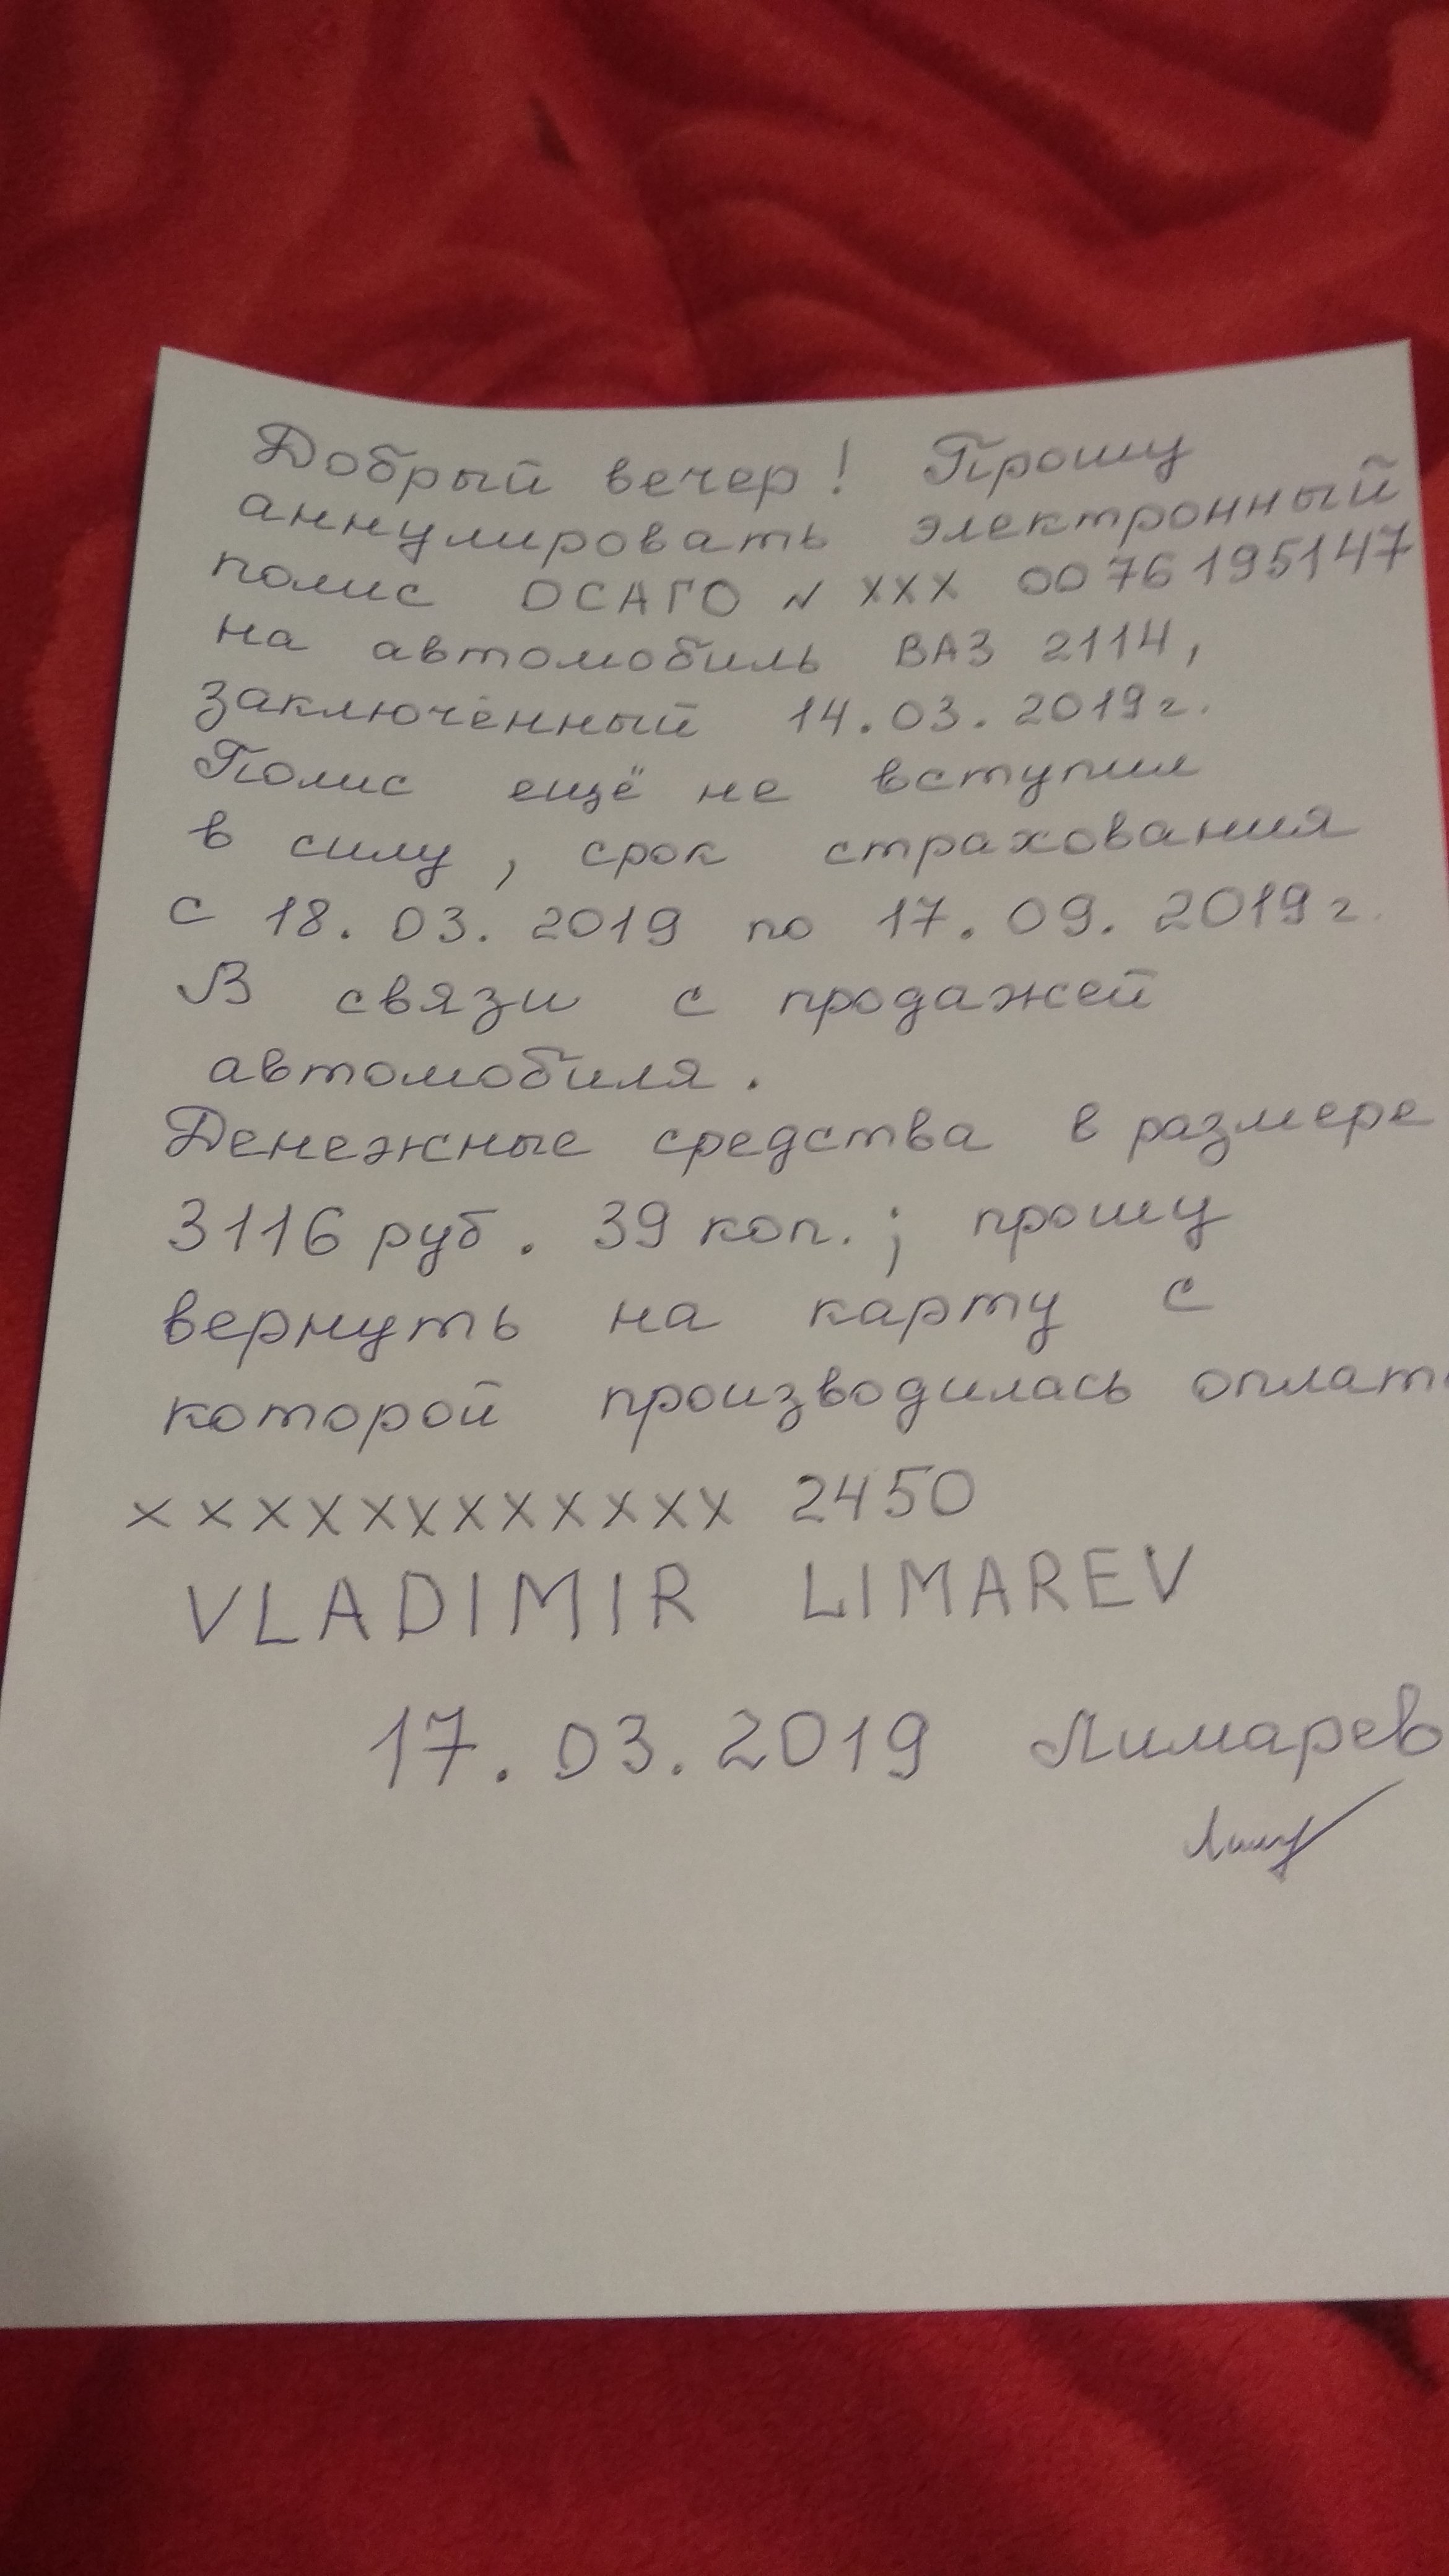 Добрый вечер! Прошу
аннулировать электронный
полис ОСАГО № ХХХ 0076195147
на автомобиль ВАЗ 2114,
заключённый 14.03.2019г.
Полис ещё не вступил
в силу, срок страхования
с 18.03.2019 по 17.09.2019г.
В связи с продажей
автомобиля.
Денежные средства в размере
3116 руб. 39 коп.; прошу
вернуть на карту с
которой производилась оплата
ХХХХХХХХХХХХ 2450
VLADIMIR LIMAREV
17.03.2019 Лимарев